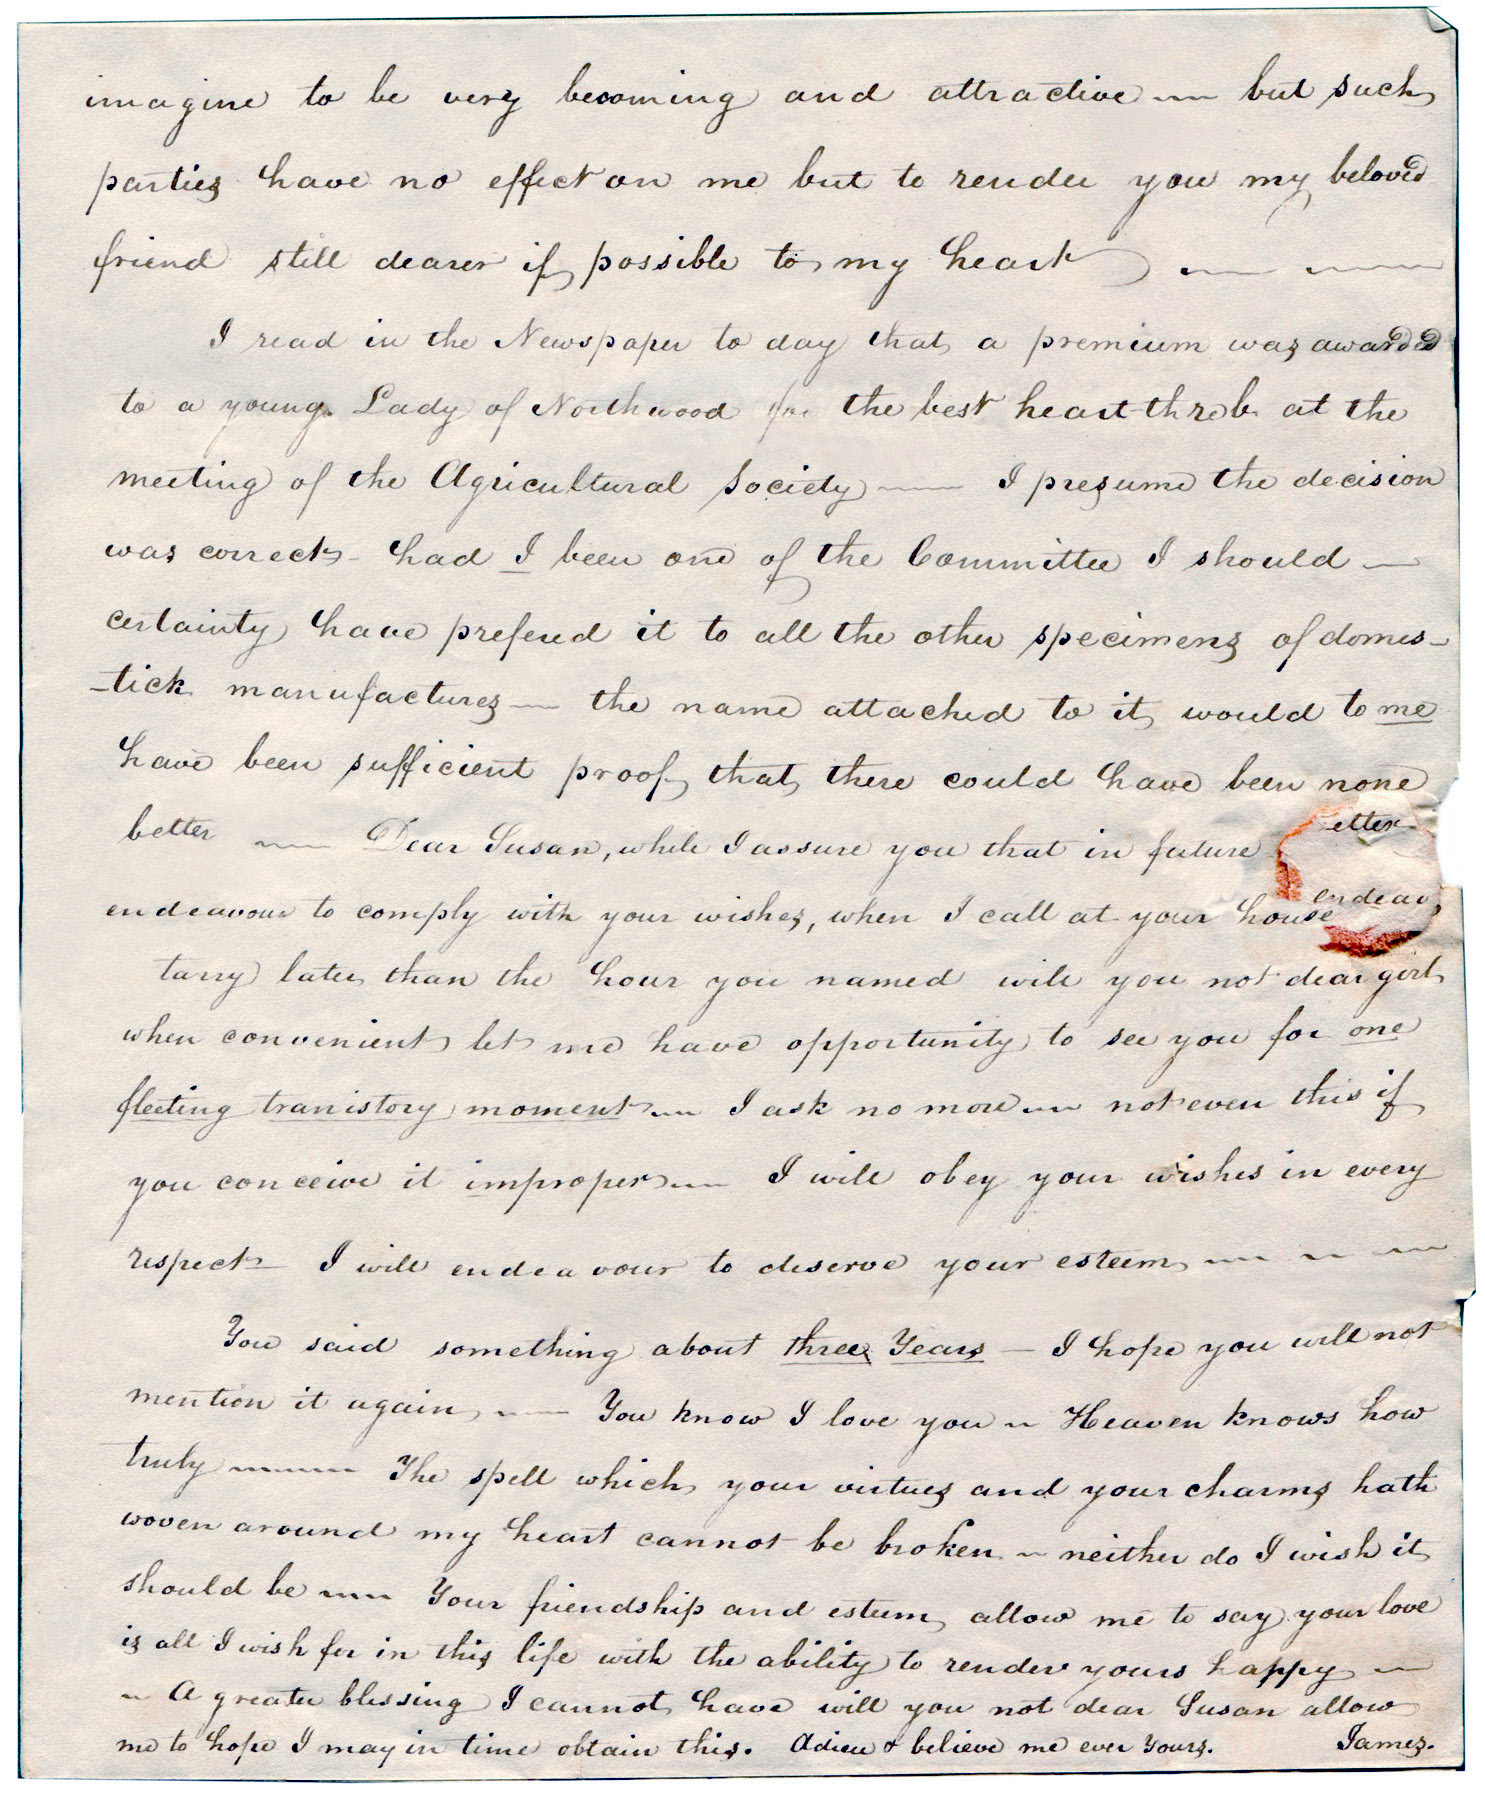 imagine to be very becoming and attractive — but such
parties have no effect on me but to render you my beloved
friend still dearer if possible to my heart — —
I read in the Newspaper to day that a premium was awarded
to a young Lady of Northwood for the best heart throb at the
meeting of the Agricultural Society — I presume the decision
was correct - had I been one of the Committee I should —
certainty have prefered it to all the other specimens of domes-
-tick manufactures — the name attached to it would to me
have been sufficient proof that there could have been none
better — Dear Susan, while I assure you that in future etter
endeavour to comply with your wishes, when I call at your house endeav
tarry later than the hour you named will you not dear girl
when convenient let me have opportunity to see you for one
fleeting tranistory moment — I ask no more — not even this if
you conceive it improper — I will obey your wishes in every
respect — I will endeavour to deserve your esteem — — —
You said something about three Years — I hope you will not
mention it again — You know I love you — Heaven knows how
truly — The spell which your virtues and your charms hath
woven around my heart cannot be broken — neither do I wish it
should be — Your friendship and esteem, allow me to say your love
is all I wish for in this life with the ability to render yours happy —
— A greater blessing I cannot have will you not dear Susan allow
me to hope I may in time obtain this. Adieu & believe me ever yours. James.